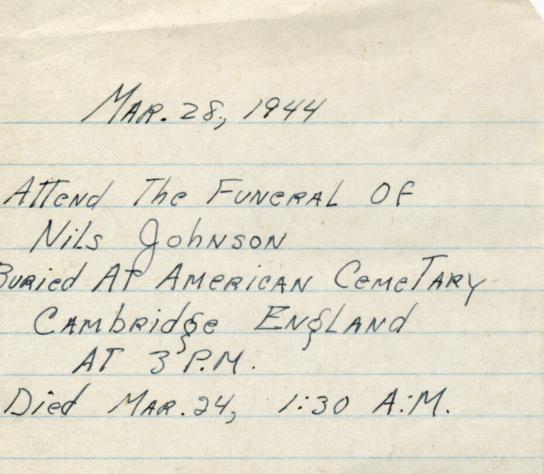 Mar. 28, 1944
Attend The Funeral Of
Nils Johnson
Buried At American Cemetary
Cambridge England
At 3 P.M.
Died Mar. 24, 1:30 A.M.